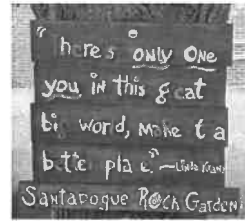 "here's only One
you in this g eat
bi world, Make t a
bette pla e."
Santapogue Rock Garden